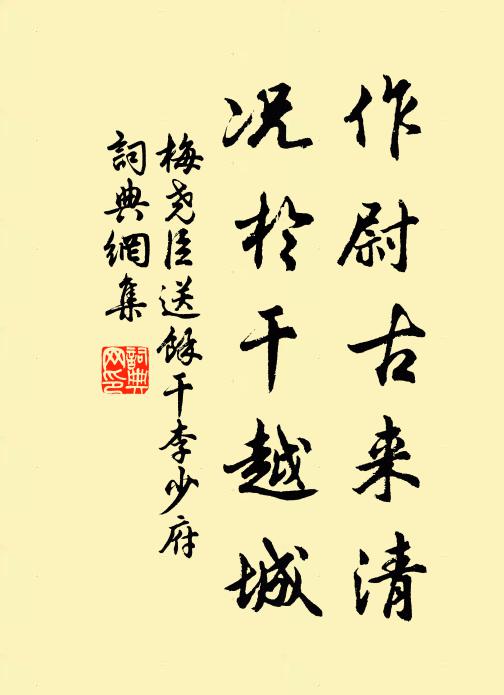 作尉古来清
况於干越城
梅尧臣送馀干李少府
詞典網集
詞典
网印